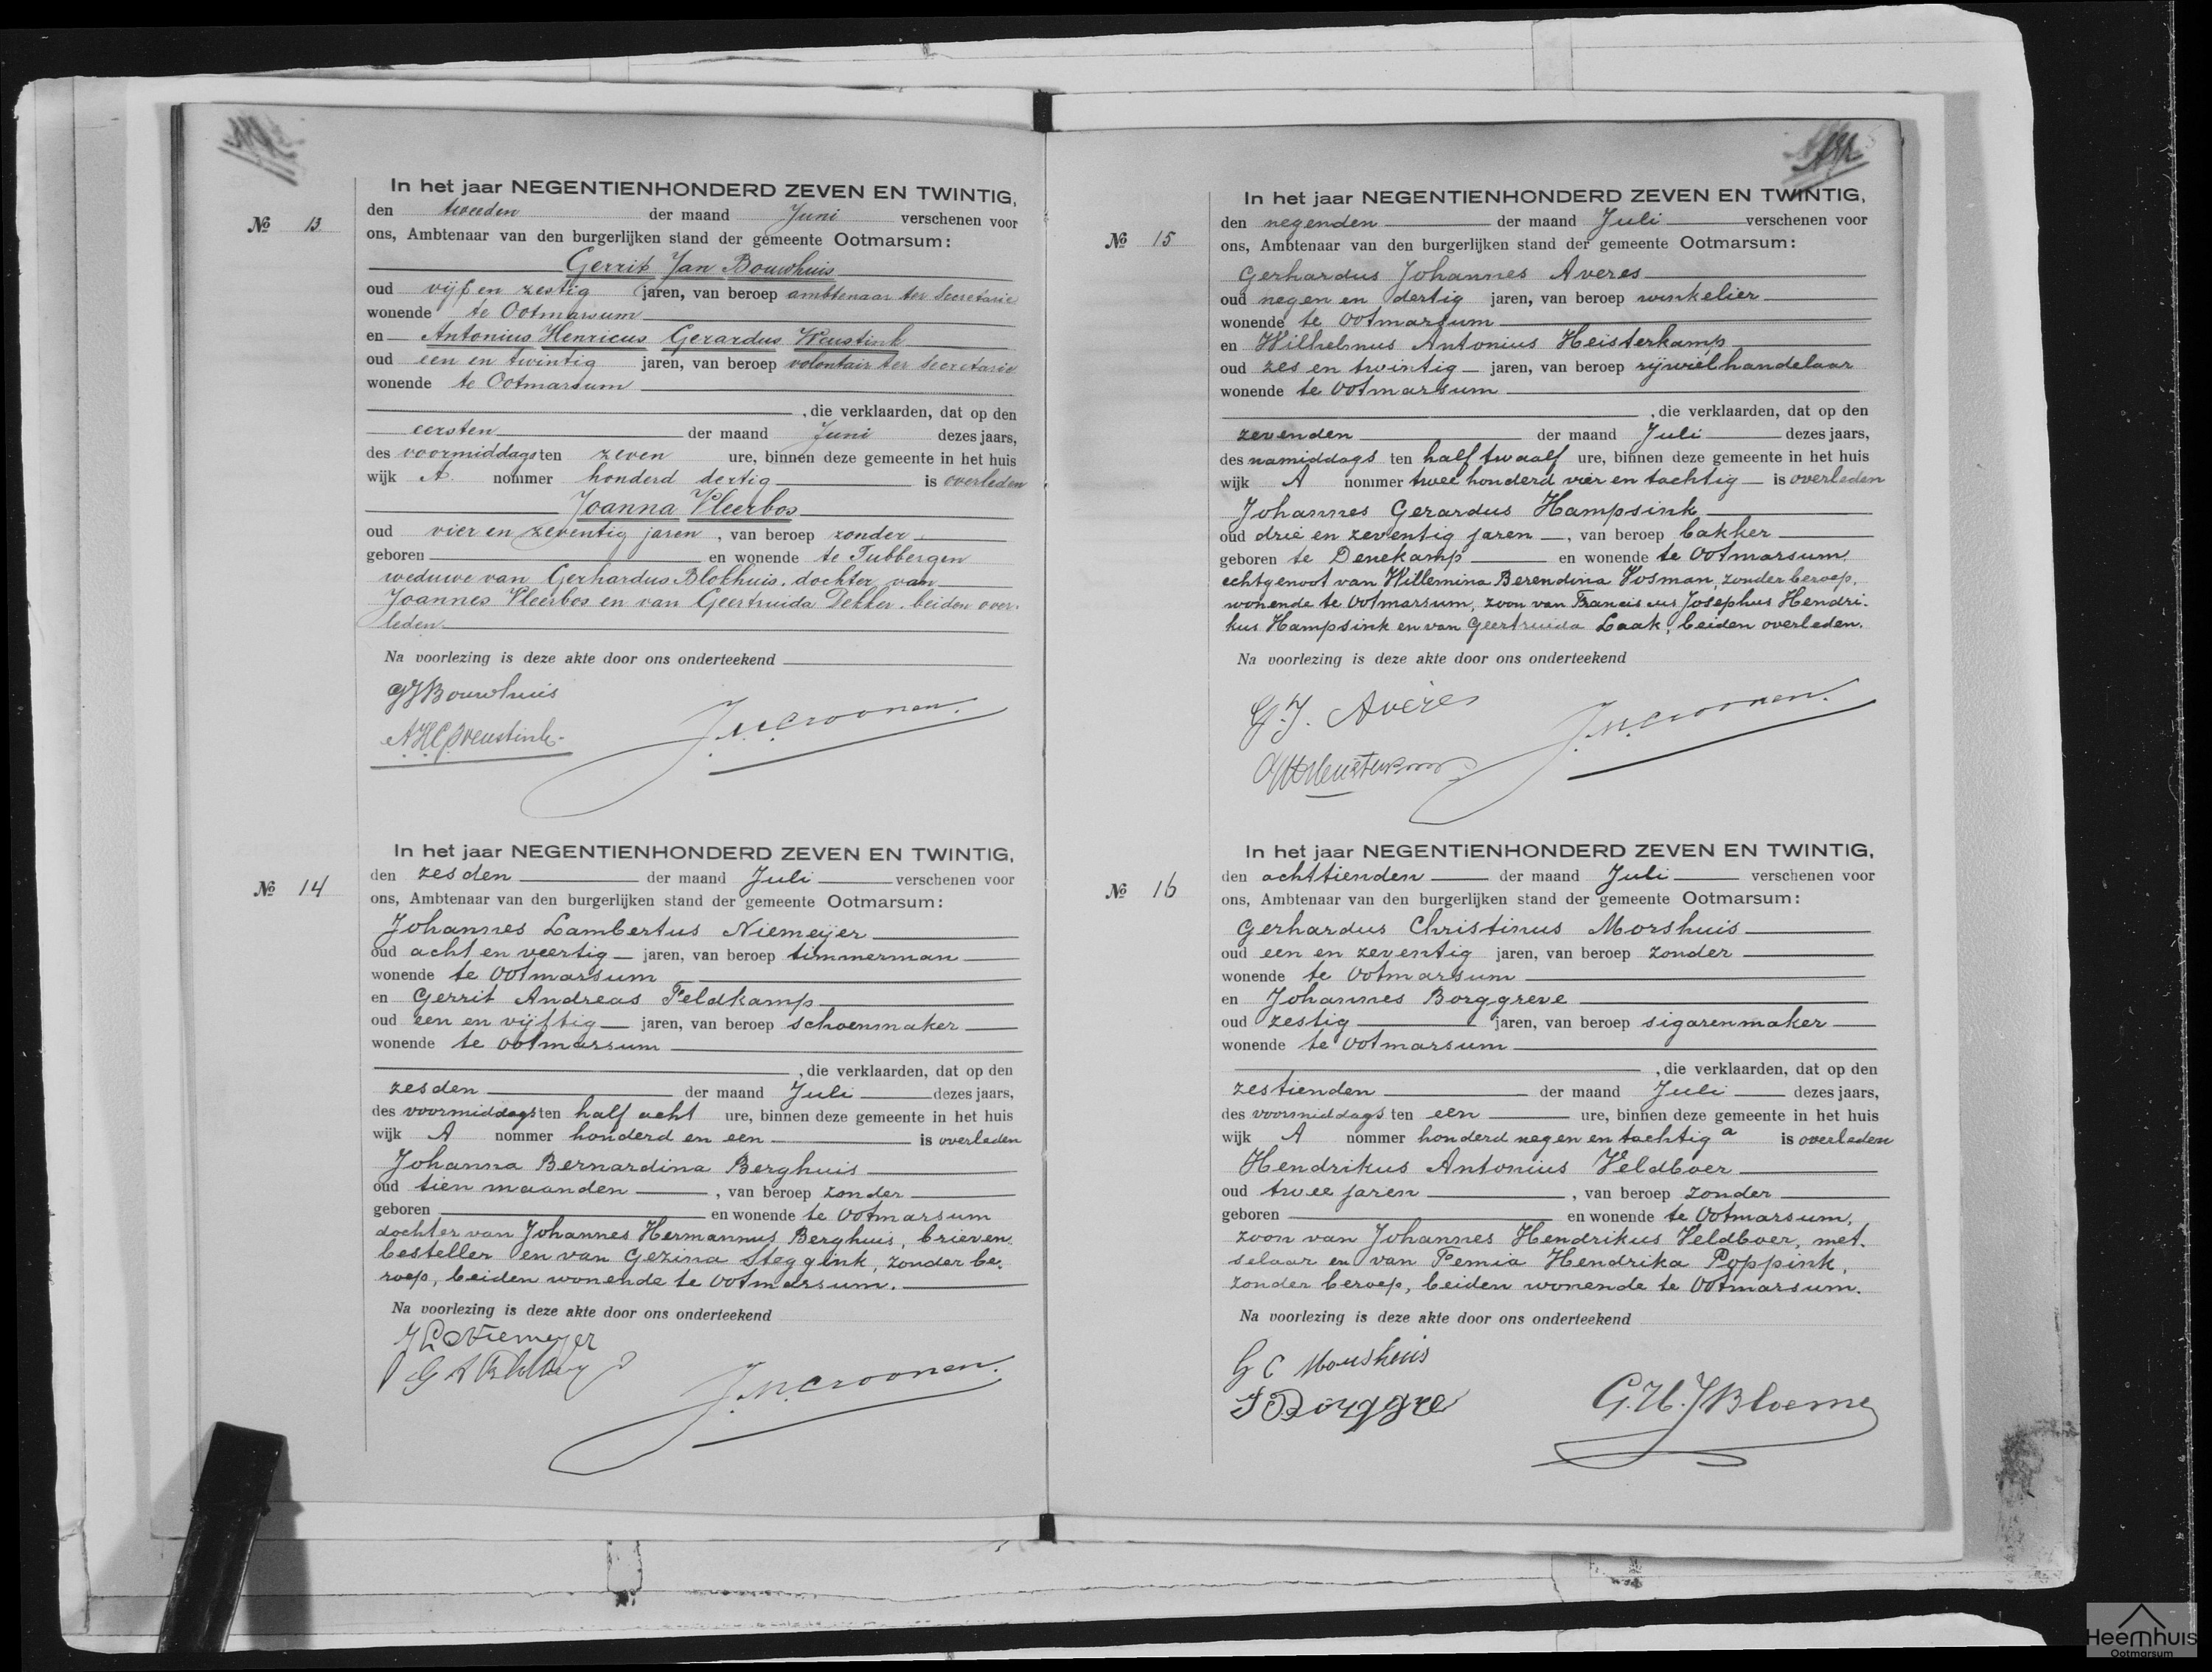 In het jaar NEGENTIENHONDERD ZEVEN EN TWINTIG,
No 13 den tweeden der maand Juni verschenen voor
ons, Ambtenaar van den burgerlijken stand der gemeente Ootmarsum:
Gerrit Jan Bouwhuis
oud vijf en zestig jaren, van beroep ambtenaar ter secretarie
wonende te Ootmarsum
en Antonius Henricus Gerardus Weustink
oud een en twintig jaren, van beroep volontair ter secretarie
wonende te Ootmarsum
, die verklaarden, dat op den
eersten der maand Juni dezes jaars,
des voormiddags ten zeven ure, binnen deze gemeente in het huis
wijk A nommer honderd dertig is overleden
Joanna Vleerbos
oud vier en zeventig jaren, van beroep zonder
geboren en wonende te Tubbergen
weduwe van Gerhardus Blokhuis, dochter van
Joannes Vleerbos en van Geertruida Dekker, beiden over-
leden.
Na voorlezing is deze akte door ons onderteekend
GJBouwhuis
AHGWeustink
J.M.Croonen.
In het jaar NEGENTIENHONDERD ZEVEN EN TWINTIG,
No 14 den zesden der maand Juli verschenen voor
ons, Ambtenaar van den burgerlijken stand der gemeente Ootmarsum:
Johannes Lambertus Niemeijer
oud acht en veertig jaren, van beroep timmerman
wonende te Ootmarsum
en Gerrit Andreas Feldkamp
oud een en vijftig jaren, van beroep schoenmaker
wonende te Ootmarsum
, die verklaarden, dat op den
zesden der maand Juli dezes jaars,
des voormiddags ten half acht ure, binnen deze gemeente in het huis
wijk A nommer honderd en een is overleden
Johanna Bernardina Berghuis
oud tien maanden, van beroep zonder
geboren en wonende te Ootmarsum
dochter van Johannes Hermannus Berghuis, brieven
besteller en van Gezina Steggink, zonder be-
roep, beiden wonende te Ootmarsum.
Na voorlezing is deze akte door ons onderteekend
J L Niemeijer
J.M.Croonen.
In het jaar NEGENTIENHONDERD ZEVEN EN TWINTIG,
No 15 den negenden der maand Juli verschenen voor
ons, Ambtenaar van den burgerlijken stand der gemeente Ootmarsum:
Gerhardus Johannes Averes
oud negen en dertig jaren, van beroep winkelier
wonende te Ootmarsum
en Wilhelmus Antonius Heisterkamp
oud zes en twintig jaren, van beroep rijwielhandelaar
wonende te Ootmarsum
, die verklaarden, dat op den
zevenden der maand Juli dezes jaars,
des namiddags ten half twaalf ure, binnen deze gemeente in het huis
wijk A nommer twee honderd vier en tachtig is overleden
Johannes Gerardus Hampsink
oud drie en zeventig jaren, van beroep bakker
geboren te Denekamp en wonende te Ootmarsum,
echtgenoot van Willemina Berendina Vosman, zonder beroep,
wonende te Ootmarsum, zoon van Franciscus Josephus Hendri-
kus Hampsink en van Geertruida Laak, beiden overleden.
Na voorlezing is deze akte door ons onderteekend
G.J. Averes
J.M.Croonen.
In het jaar NEGENTIENHONDERD ZEVEN EN TWINTIG,
No 16 den achttienden der maand Juli verschenen voor
ons, Ambtenaar van den burgerlijken stand der gemeente Ootmarsum:
Gerhardus Christinus Morshuis
oud een en zeventig jaren, van beroep zonder
wonende te Ootmarsum
en Johannes Borggreve
oud zestig jaren, van beroep sigarenmaker
wonende te Ootmarsum
, die verklaarden, dat op den
zestienden der maand Juli dezes jaars,
des voormiddags ten een ure, binnen deze gemeente in het huis
wijk A nommer honderd negen en tachtig a is overleden
Hendrikus Antonius Veldboer
oud twee jaren, van beroep zonder
geboren en wonende te Ootmarsum,
zoon van Johannes Hendrikus Veldboer, met-
selaar en van Femia Hendrika Poppink,
zonder beroep, beiden wonende te Ootmarsum.
Na voorlezing is deze akte door ons onderteekend
G C Morshuis
J Borggre
G.H.J Bloeme
Heemhuis
Ootmarsum